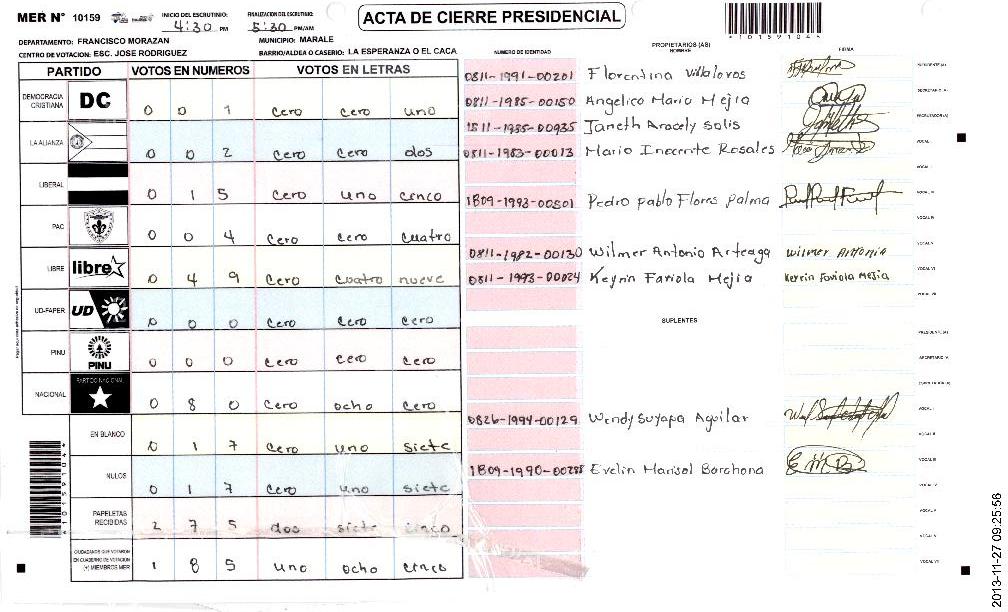 MER Nº 10159 INICIO DEL ESCRUTINIO: 4:30 PM FINALIZACION DEL ESCRUTINIO: 5:30 PM/AM
ACTA DE CIERRE PRESIDENCIAL
*10159104*
DEPARTAMENTO: FRANCISCO MORAZAN MUNICIPIO: MARALE
CENTRO DE VOTACION: ESC. JOSE RODRIGUEZ BARRIO/ALDEA O CASERIO: LA ESPERANZA O EL CACA
PARTIDO VOTOS EN NUMEROS VOTOS EN LETRAS
DEMOCRACIA CRISTIANA DC 0 0 1 cero cero uno
LA ALIANZA 0 0 2 cero cero dos
LIBERAL 0 1 5 cero uno cinco
PAC 0 0 4 cero cero cuatro
LIBRE libre 0 4 9 cero cuatro nueve
UD-FAPER UD 0 0 0 cero cero cero
PINU PINU 0 0 0 cero cero cero
NACIONAL PARTIDO NACIONAL 0 8 0 cero ocho cero
EN BLANCO 0 1 7 cero uno siete
NULOS 0 1 7 cero uno siete
PAPELETAS RECIBIDAS 2 7 5 dos siete cinco
CIUDADANOS QUE VOTARON EN CUADERNO DE VOTACION (+) MIEMBROS MER 1 8 5 uno ocho cinco
*10159104*
NUMERO DE IDENTIDAD PROPIETARIOS (AS) NOMBRE FIRMA
0811-1991-00201 Florentina Villaloros PRESIDENTE (A)
0811-1985-00150 Angelica Maria Mejia SECRETARIO (A)
1811-1985-00935 Janeth Aracely Solis ESCRUTADOR (A)
0811-1983-00013 Mario Inocente Rosales VOCAL I
VOCAL II
1809-1993-00501 Pedro pablo Flores Palma VOCAL III
VOCAL IV
0811-1982-00130 Wilmer Antonio Arteaga Wilmer Antonio VOCAL V
0811-1993-00024 Keyrin Fariola Mejia Kerrin Fariola Mejia VOCAL VI
VOCAL VII
SUPLENTES
PRESIDENTE (A)
SECRETARIO (A)
ESCRUTADOR (A)
0826-1994-00129 Wendy Suyapa Aguilar VOCAL I
VOCAL II
1809-1990-00285 Evelin Marisol Barahona VOCAL III
VOCAL IV
VOCAL V
VOCAL VI
VOCAL VII
2013-11-27 09:25:56